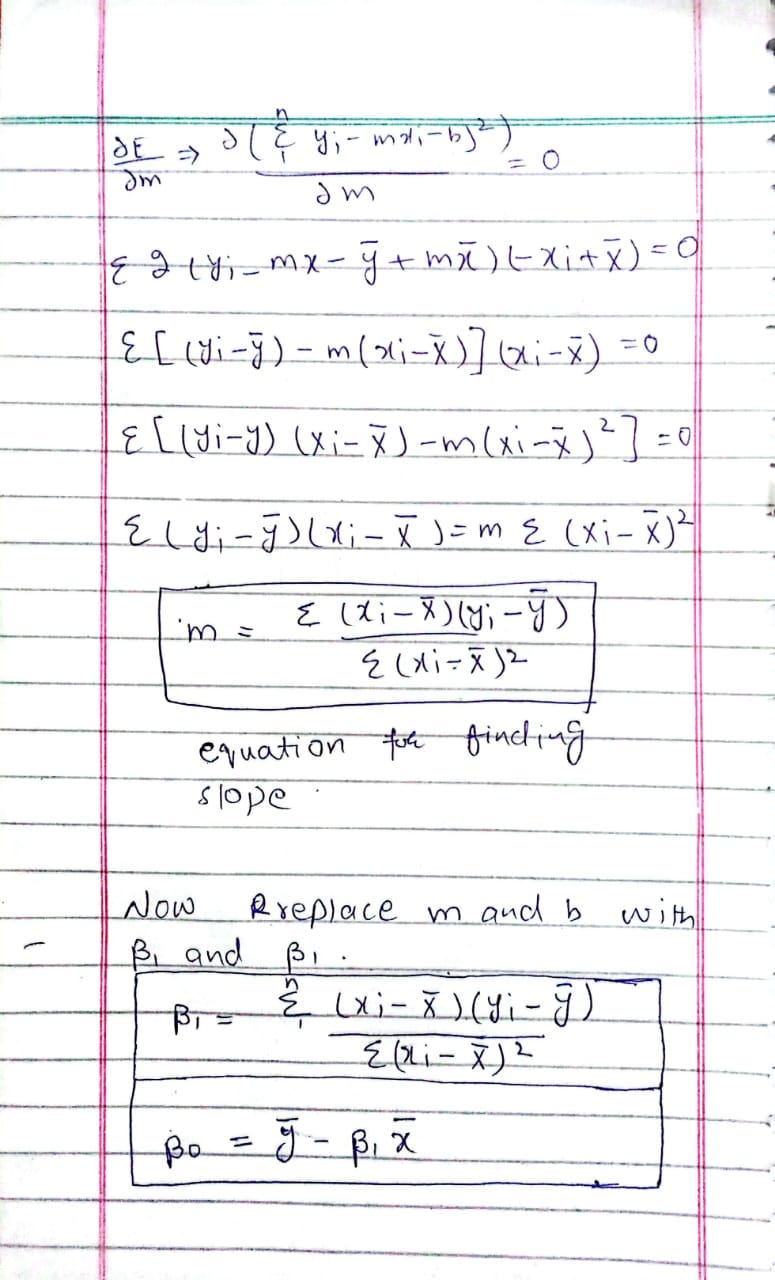 ∂E/∂m ⇒ ∂(Σ₁ⁿ yᵢ - mxᵢ - b)²)/∂m = 0
Σ 2 (yᵢ - mx - ȳ + mx̄) (-xᵢ + x̄) = 0
Σ [(yᵢ - ȳ) - m(xᵢ - x̄)] (xᵢ - x̄) = 0
Σ [(yᵢ - y) (xᵢ - x̄) - m(xᵢ - x̄)²] = 0
Σ (yᵢ - ȳ)(xᵢ - x̄) = m Σ (xᵢ - x̄)²
m = Σ (xᵢ - x̄)(yᵢ - ȳ) / Σ (xᵢ - x̄)²
equation for finding
slope
Now Rreplace m and b with
β₁ and β₁.
β₁ = Σ₁ⁿ (xᵢ - x̄)(yᵢ - ȳ) / Σ(xᵢ - x̄)²
β₀ = ȳ - β₁ x̄